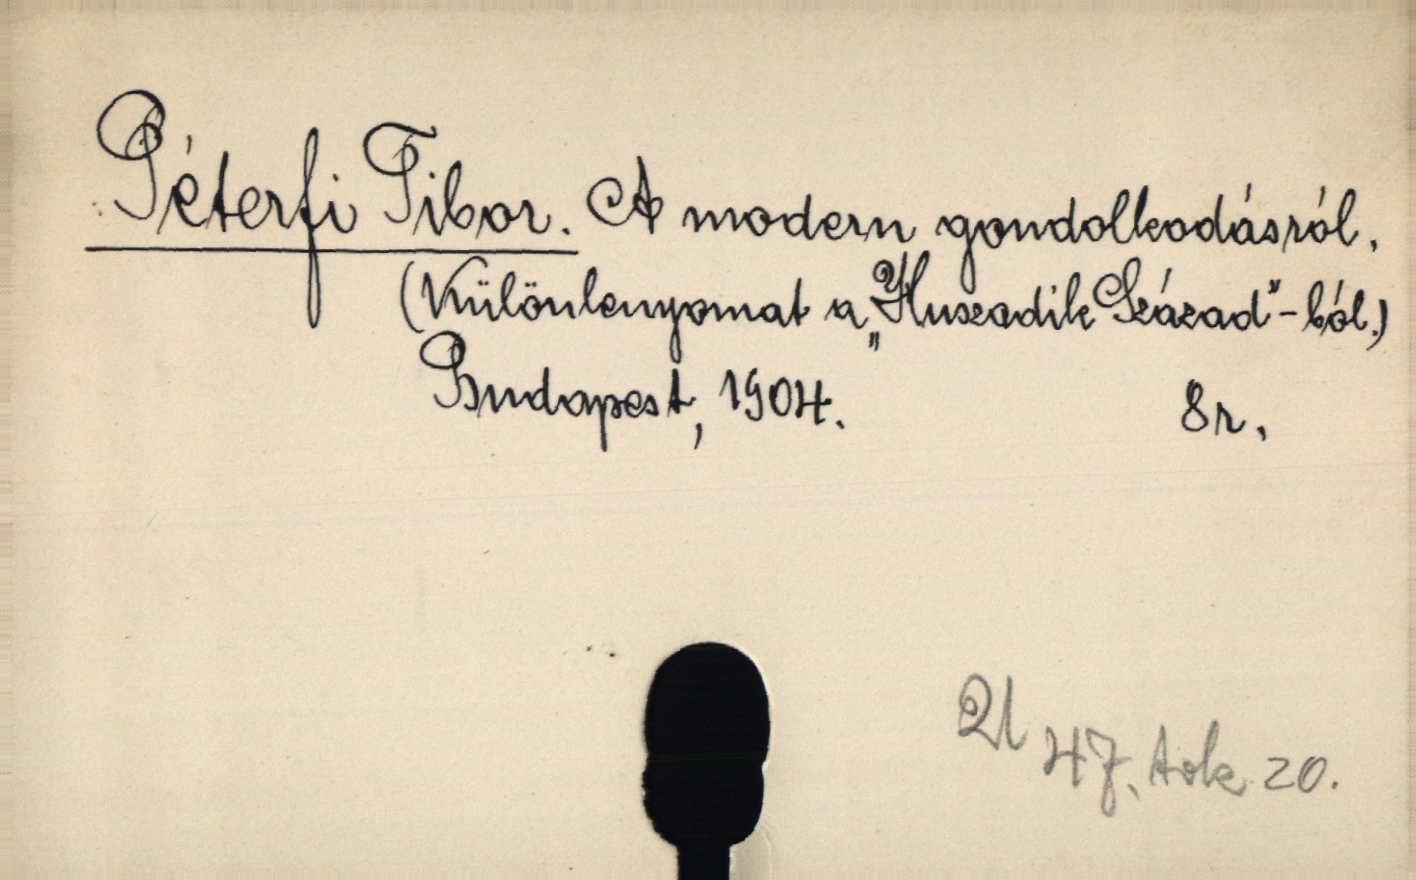 Péterfi Tibor. A modern gondolkodásról.
(Különlenyomat a „Huszadik Század"-ból.)
Budapest, 1904. 8r.
47. tok 20.